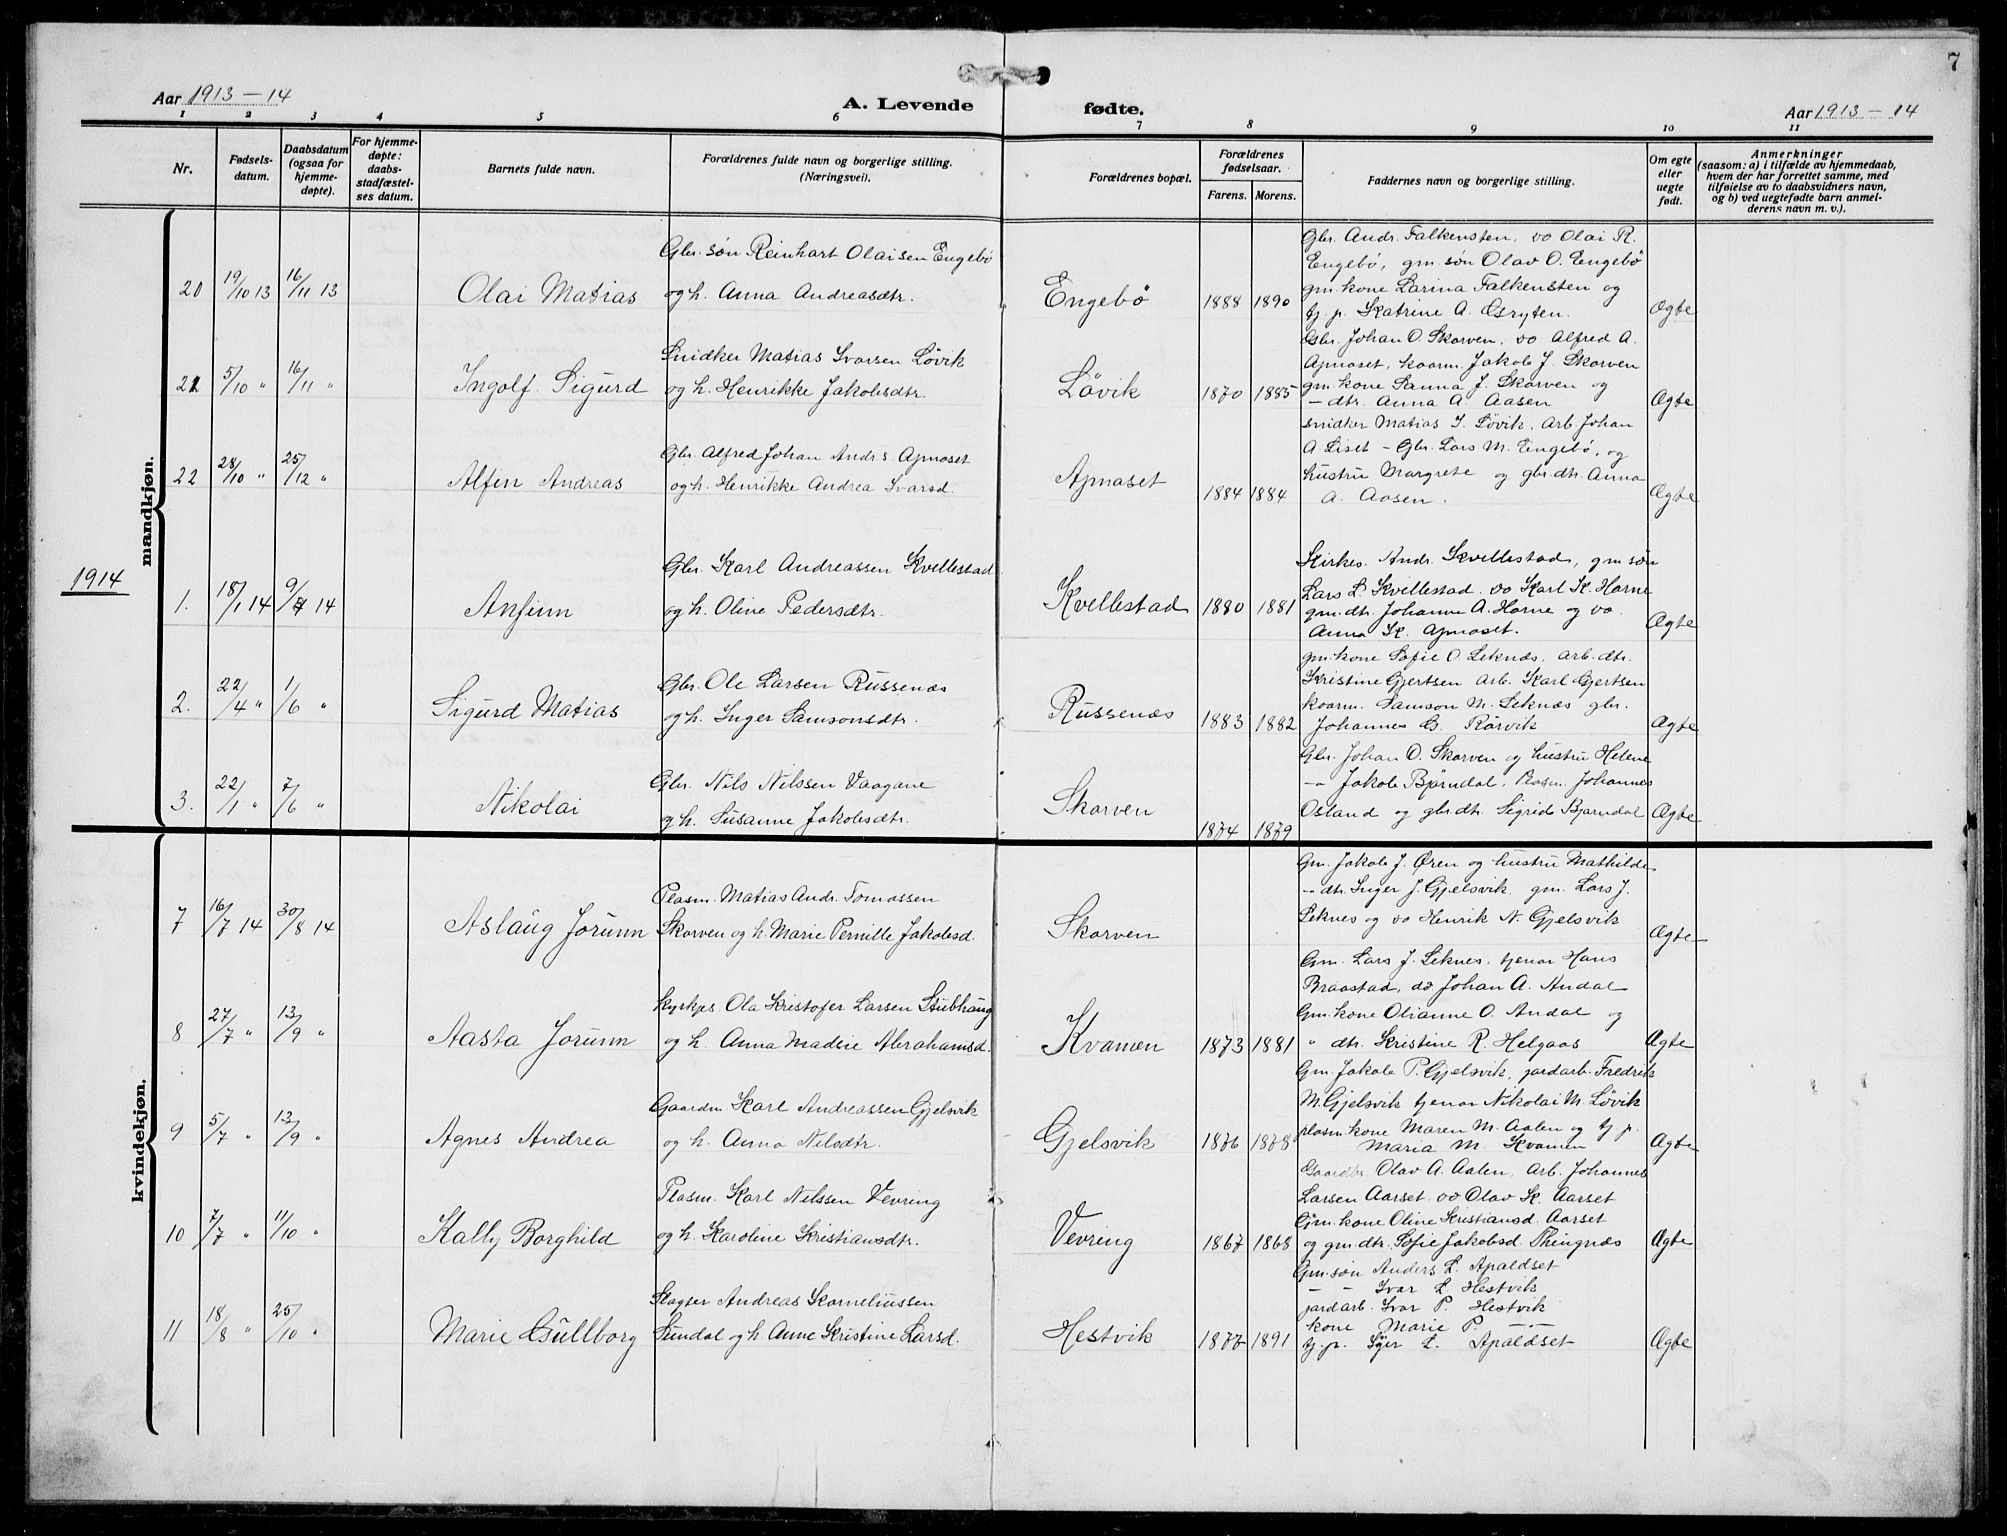 7
Aar 1913-14
A. Levende
fødte.
Aar 1913-14
1 2 3 4 5 6 7 8 9 10 11
Nr.
Fødsels-
datum.
Daabsdatum
(ogsaa for
hjemme-
døpte).
For hjemme-
døpte:
daabs-
stadfæstel-
ses datum.
Barnets fulde navn.
Forældrenes fulde navn og borgerlige stilling.
(Næringsvei).
Forældrenes bopæl.
Forældrenes
fødselsaar.
Farens. Morens.
Faddernes navn og borgerlige stilling.
Om egte
eller
uegte
født.
Anmerkninger
(saasom: a) i tilfælde av hjemmedaab,
hvem der har forrettet samme, med
tilføielse av to daabsvidners navn,
og b) ved uegtefødte barn anmel-
derens navn m. v.).
mandkjøn.
1914
kvindekjøn.
Gbr. søn Reinhart Olaisen Engebø
20 19/10 13 16/11 13 Olai Matias og h. Anna Andreasdtr. Engebö 1888 1890 Ægte
Gbr. Andr. Falkensten, do Olai R.
Engebö, gm. søn Olav O. Engebö
gm. kone Larina Falkensten og
tj. p. Katrine A. Gryten.
Snidker Matias Ivarsen Løvik
21 5/10 " 16/11 " Ingolf Sigurd og h. Henrikke Jakobsdtr. Lövik 1870 1885 Ægte
Gbr. Johan O. Skorven, do Alfred A.
Apnaset, kaarm. Jakob J. Skorven
gm. kone Sanna J. Skorven og
- dtr. Anna A. Aasen
Gbr. Alfred Johan Andr.s. Apnaset
22 28/10 " 25/12 " Alfin Andreas og h. Henrikke Andrea Ivarsd. Apnaset 1884 1884 Ægte
snidker Matias I. Løvik, Arb. Johan
A Liset - Gbr. Lars M. Engebø, og
hustru Margrete og gbr. dtr. Anna
A. Aasen.
Gbr. Karl Andreassen Kvellestad
1. 18/1 14 9/4 14 Anfinn og h. Oline Pedersdtr. Kvellestad 1880 1881 Ægte
Kirkes. Andr. Kvellestad, gm. søn
Lars L. Kvellestad. do Karl K. Horne
gm. dtr. Johanne A. Horne og do.
Anna K. Apnaset.
Gbr. Ole Larsen Russenæs
2. 22/4 " 1/6 " Sigurd Matias og h. Inger Samsonsdtr. Russenæs 1883 1882 Ægte
gm. kone Sofie O. Seknæs, arb. dtr.
Kristine Gjertsen arb. Karl Gjertsen
kaarm. Samson M. Seknæs gbr.
Johannes G. Rørvik
Gbr. Nils Nilssen Vaagane
3. 22/1 " 7/6 " Nikolai og h. Susanne Jakobsdtr. Skorven 1874 1879 Ægte
Gbr. Johan O. Skorven og hustru Helene
-" Jakob Bjørndal, Plasm. Johannes
Osland og gbr. dtr. Sigrid Bjørndal
Plasm. Matias Andr. Tomassen
7 16/7 14 30/8 14 Aslaug Jorunn Skorven og h. Marie Pernille Jakobsd. Skorven Ægte
Gm. Jakob J. Øren og hustru Mathilde
-" dtr. Inger J. Gjelsvik, gm. Lars J.
Seknes og do Henrik N. Gjelsvik
Kyrkjes. Ola Kristofer Larsen Stubhaug
8 27/7 " 13/9 " Aasta Jorunn og h. Anna Madsie Abrahamsd. Kvamen 1873 1881 Ægte
Gm. Lars J. Seknes, tjenar Hans
Braastad, do Johan A. Andal
Gm. kone Olianne O. Andal og
" dtr. Kristine R. Helgaas
Gaardm. Karl Andreassen Gjelsvik
9 5/7 " 13/9 " Agnes Andrea og h. Anna Nilsdtr. Gjelsvik 1876 1878 Ægte
Gm. Jakob P. Gjelsvik, jordarb. Fredrik
M. Gjelsvik tjenar Nikolai M. Løvik
plasm. kone Maren M. Aalen og tj. p.
Maria M. Kvamen
Plasm. Karl Nilssen Vevring
10 7/7 " 11/10 " Kally Borghild og h. Karoline Kristiansdtr. Vevring 1867 1868 Ægte
Gaardbr. Olav A. Aalen, Arb. Johannes
Larsen Aarset. do Olav K. Aarset
Gm. kone Oline Kristiansd. Aarset
og gm. dtr. Sofie Jakobsd. Thingnæs
Slagter Andreas Korneliussen
11 18/8 " 25/10 " Marie Gullborg Sundal og h. Anne Kristine Larsd. Hestvik 1877 1891 Ægte
Gm. søn Anders L. Apaldset
- - Ivar L. Hestvik
jordarb. Ivar P. Hestvik
kone Marie P. -"-
tj. p. L. Apaldset